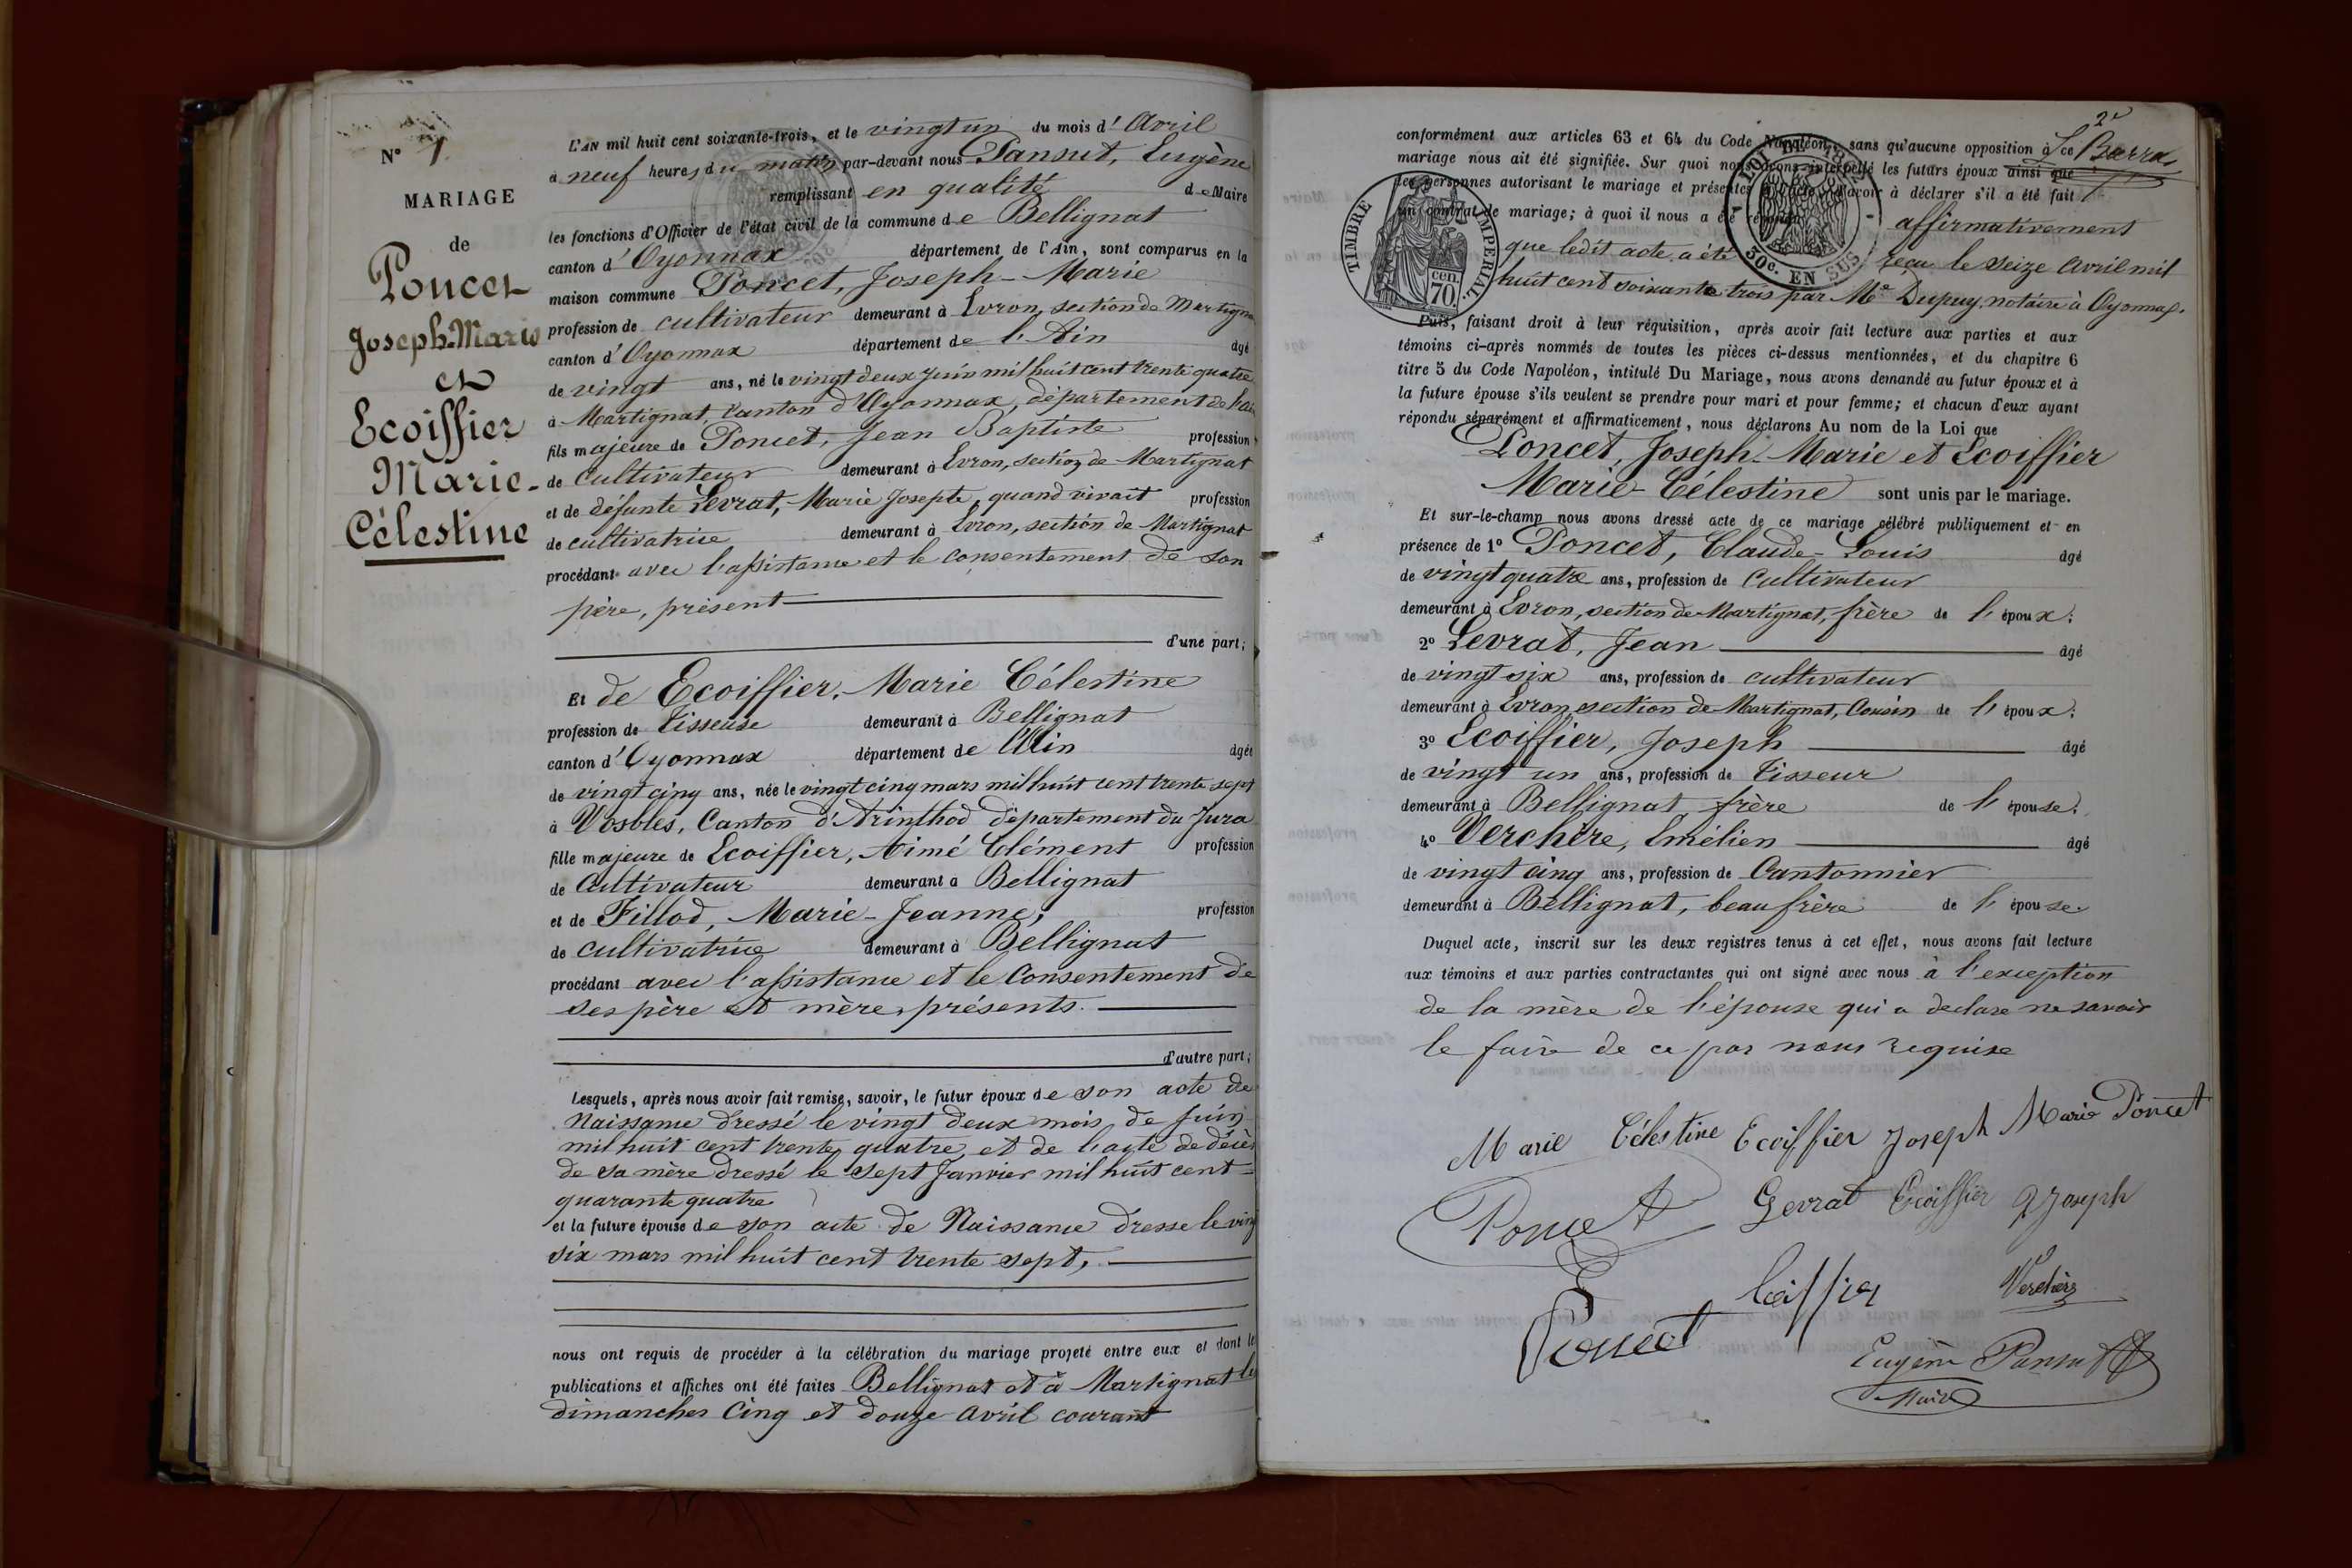 N° 1
MARIAGE
de
Poncet
Joseph-Marie
et
Ecoiffier
Marie-
Célestine
L'AN mil huit cent soixante-trois, et le vingt un du mois d'Avril
à neuf heures du matin par-devant nous Pansut, Eugène
remplissant en qualité de Maire
les fonctions d'Officier de l'état civil de la commune de Bellignat
canton d'Oyonnax département de l'Ain, sont comparus en la
maison commune Poncet, Joseph-Marie
profession de cultivateur demeurant à Evron, section de Martigna
canton d'Oyonnax département de l'Ain âgé
de vingt ans, né le vingt deux juin mil huit cent trente quatre
à Martignat, Canton d'Oyonnax, département de l'ain
fils majeure de Poncet, Jean Baptiste profession
de cultivateur demeurant à Evron, section de Martignat
et de défunte Levrat, Marie Josepte, quand vivait profession
de cultivatrice demeurant à Evron, section de Martignat
procédant avec l'assistance et le consentement de son
père, présent
d'une part;
Et de Ecoiffier, Marie Célestine
profession de Tisseuse demeurant à Bellignat
canton d'Oyonnax département de l'Ain âgée
de vingt cinq ans, née le vingt cinq mars mil huit cent trente sept
à Vosbles, Canton d'Arinthod département du Jura
fille majeure de Ecoiffier, Aimé Clément profession
de Cultivateur demeurant à Bellignat
et de Fillod, Marie-Jeanne, profession
de cultivatrice demeurant à Bellignat
procédant avec l'assistance et le Consentement de
ses père et mère, présents.
d'autre part;
Lesquels, après nous avoir fait remise, savoir, le futur époux de son acte de
Naissance dressé le vingt deux mois de Juin
mil huit cent trente quatre, et de l'acte de décès
de sa mère dressé le sept Janvier mil huit cent
quarante quatre
et la future épouse de son acte de Naissance dresse le ving
six mars mil huit cent trente sept,
nous ont requis de procéder à la célébration du mariage projeté entre eux et dont les
publications et affiches ont été faites Bellignat et à Martignat les
dimanches Cinq et douze avril courant
2e
conformément aux articles 63 et 64 du Code Napoléon, sans qu'aucune opposition à ce
mariage nous ait été signifiée. Sur quoi nous avons interpellé les futurs époux ainsi que
les personnes autorisant le mariage et présentes à l'acte, d'avoir à déclarer s'il a été fait
un contrat de mariage; à quoi il nous a été répondu affirmativement
que ledit acte a été reçu le seize avril mil
huit cent soixante trois par Me Dupuy, notaire à Oyonnax.
TIMBRE IMPERIAL
70 cen.
30c. EN SUS
Puis, faisant droit à leur réquisition, après avoir fait lecture aux parties et aux
témoins ci-après nommés de toutes les pièces ci-dessus mentionnées, et du chapitre 6
titre 5 du Code Napoléon, intitulé Du Mariage, nous avons demandé au futur époux et à
la future épouse s'ils veulent se prendre pour mari et pour femme; et chacun d'eux ayant
répondu séparément et affirmativement, nous déclarons Au nom de la Loi que
Poncet, Joseph-Marie et Ecoiffier
Marie-Célestine sont unis par le mariage.
Et sur-le-champ nous avons dressé acte de ce mariage célébré publiquement et en
présence de 1° Poncet, Claude-Louis âgé
de vingt quatre ans, profession de Cultivateur
demeurant à Evron, section de Martignat, frère de l'époux;
2° Levrat, Jean âgé
de vingt six ans, profession de cultivateur
demeurant à Evron, section de Martignat, Cousin de l'époux;
3° Ecoiffier, Joseph âgé
de vingt un ans, profession de Tisseur
demeurant à Bellignat, frère de l'épouse;
4° Verchère, Emélien âgé
de vingt cinq ans, profession de Cantonnier
demeurant à Bellignat, beau frère de l'épouse.
Duquel acte, inscrit sur les deux registres tenus à cet effet, nous avons fait lecture
aux témoins et aux parties contractantes qui ont signé avec nous à l'exception
de la mère de l'épouse qui a declare ne savoir
le faire de ce par nous requise
Marie Célestine Ecoiffier Joseph Marie Poncet
Poncet Levrat Ecoiffier Joseph
Verchère
Poncet
Eugène Pansut
Maire